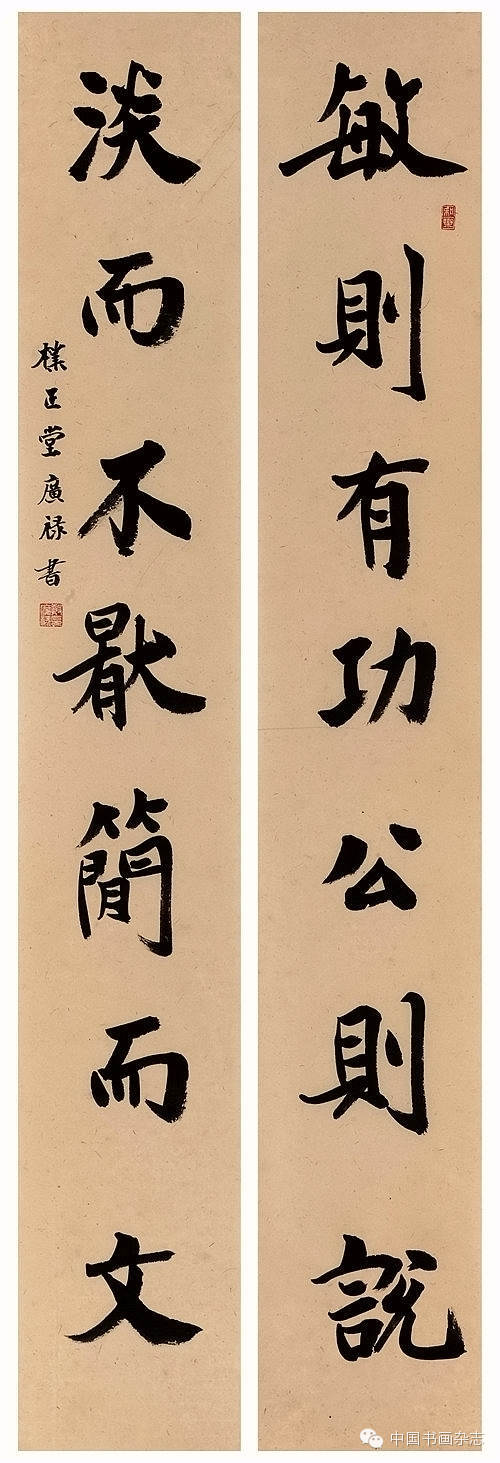 敏則有功公則説
淡而不猒簡而文
樸正堂廣禄書
中国书画杂志